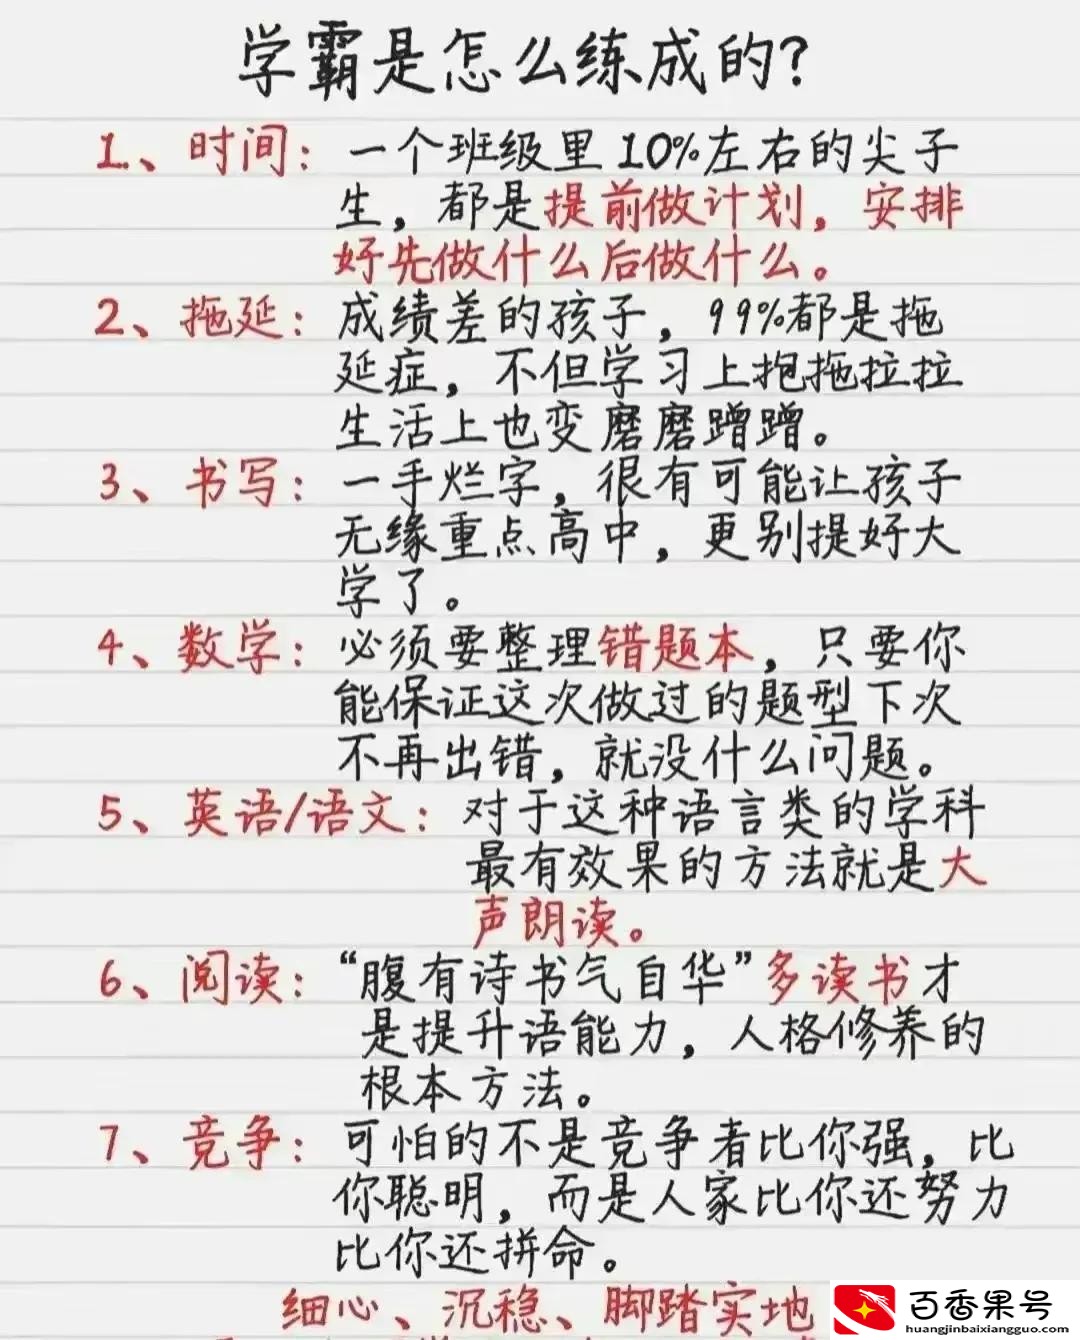 学霸是怎么练成的?
1、时间：一个班级里10%左右的尖子
生，都是提前做计划，安排
好先做什么后做什么。
2、拖延：成绩差的孩子，99%都是拖
延症，不但学习上抱拖拉拉
生活上也变磨磨蹭蹭。
3、书写：一手烂字，很有可能让孩子
无缘重点高中，更别提好大
学了。
4、数学：必须要整理错题本，只要你
能保证这次做过的题型下次
不再出错，就没什么问题。
5、英语/语文：对于这种语言类的学科
最有效果的方法就是大
声朗读。
6、阅读：“腹有诗书气自华”多读书才
是提升语能力，人格修养的
根本方法。
7、竞争：可怕的不是竞争者比你强，比
你聪明，而是人家比你还努力
比你还拼命。
细心、沉稳、脚踏实地
百香果号
huangjinbaixiangguo.com